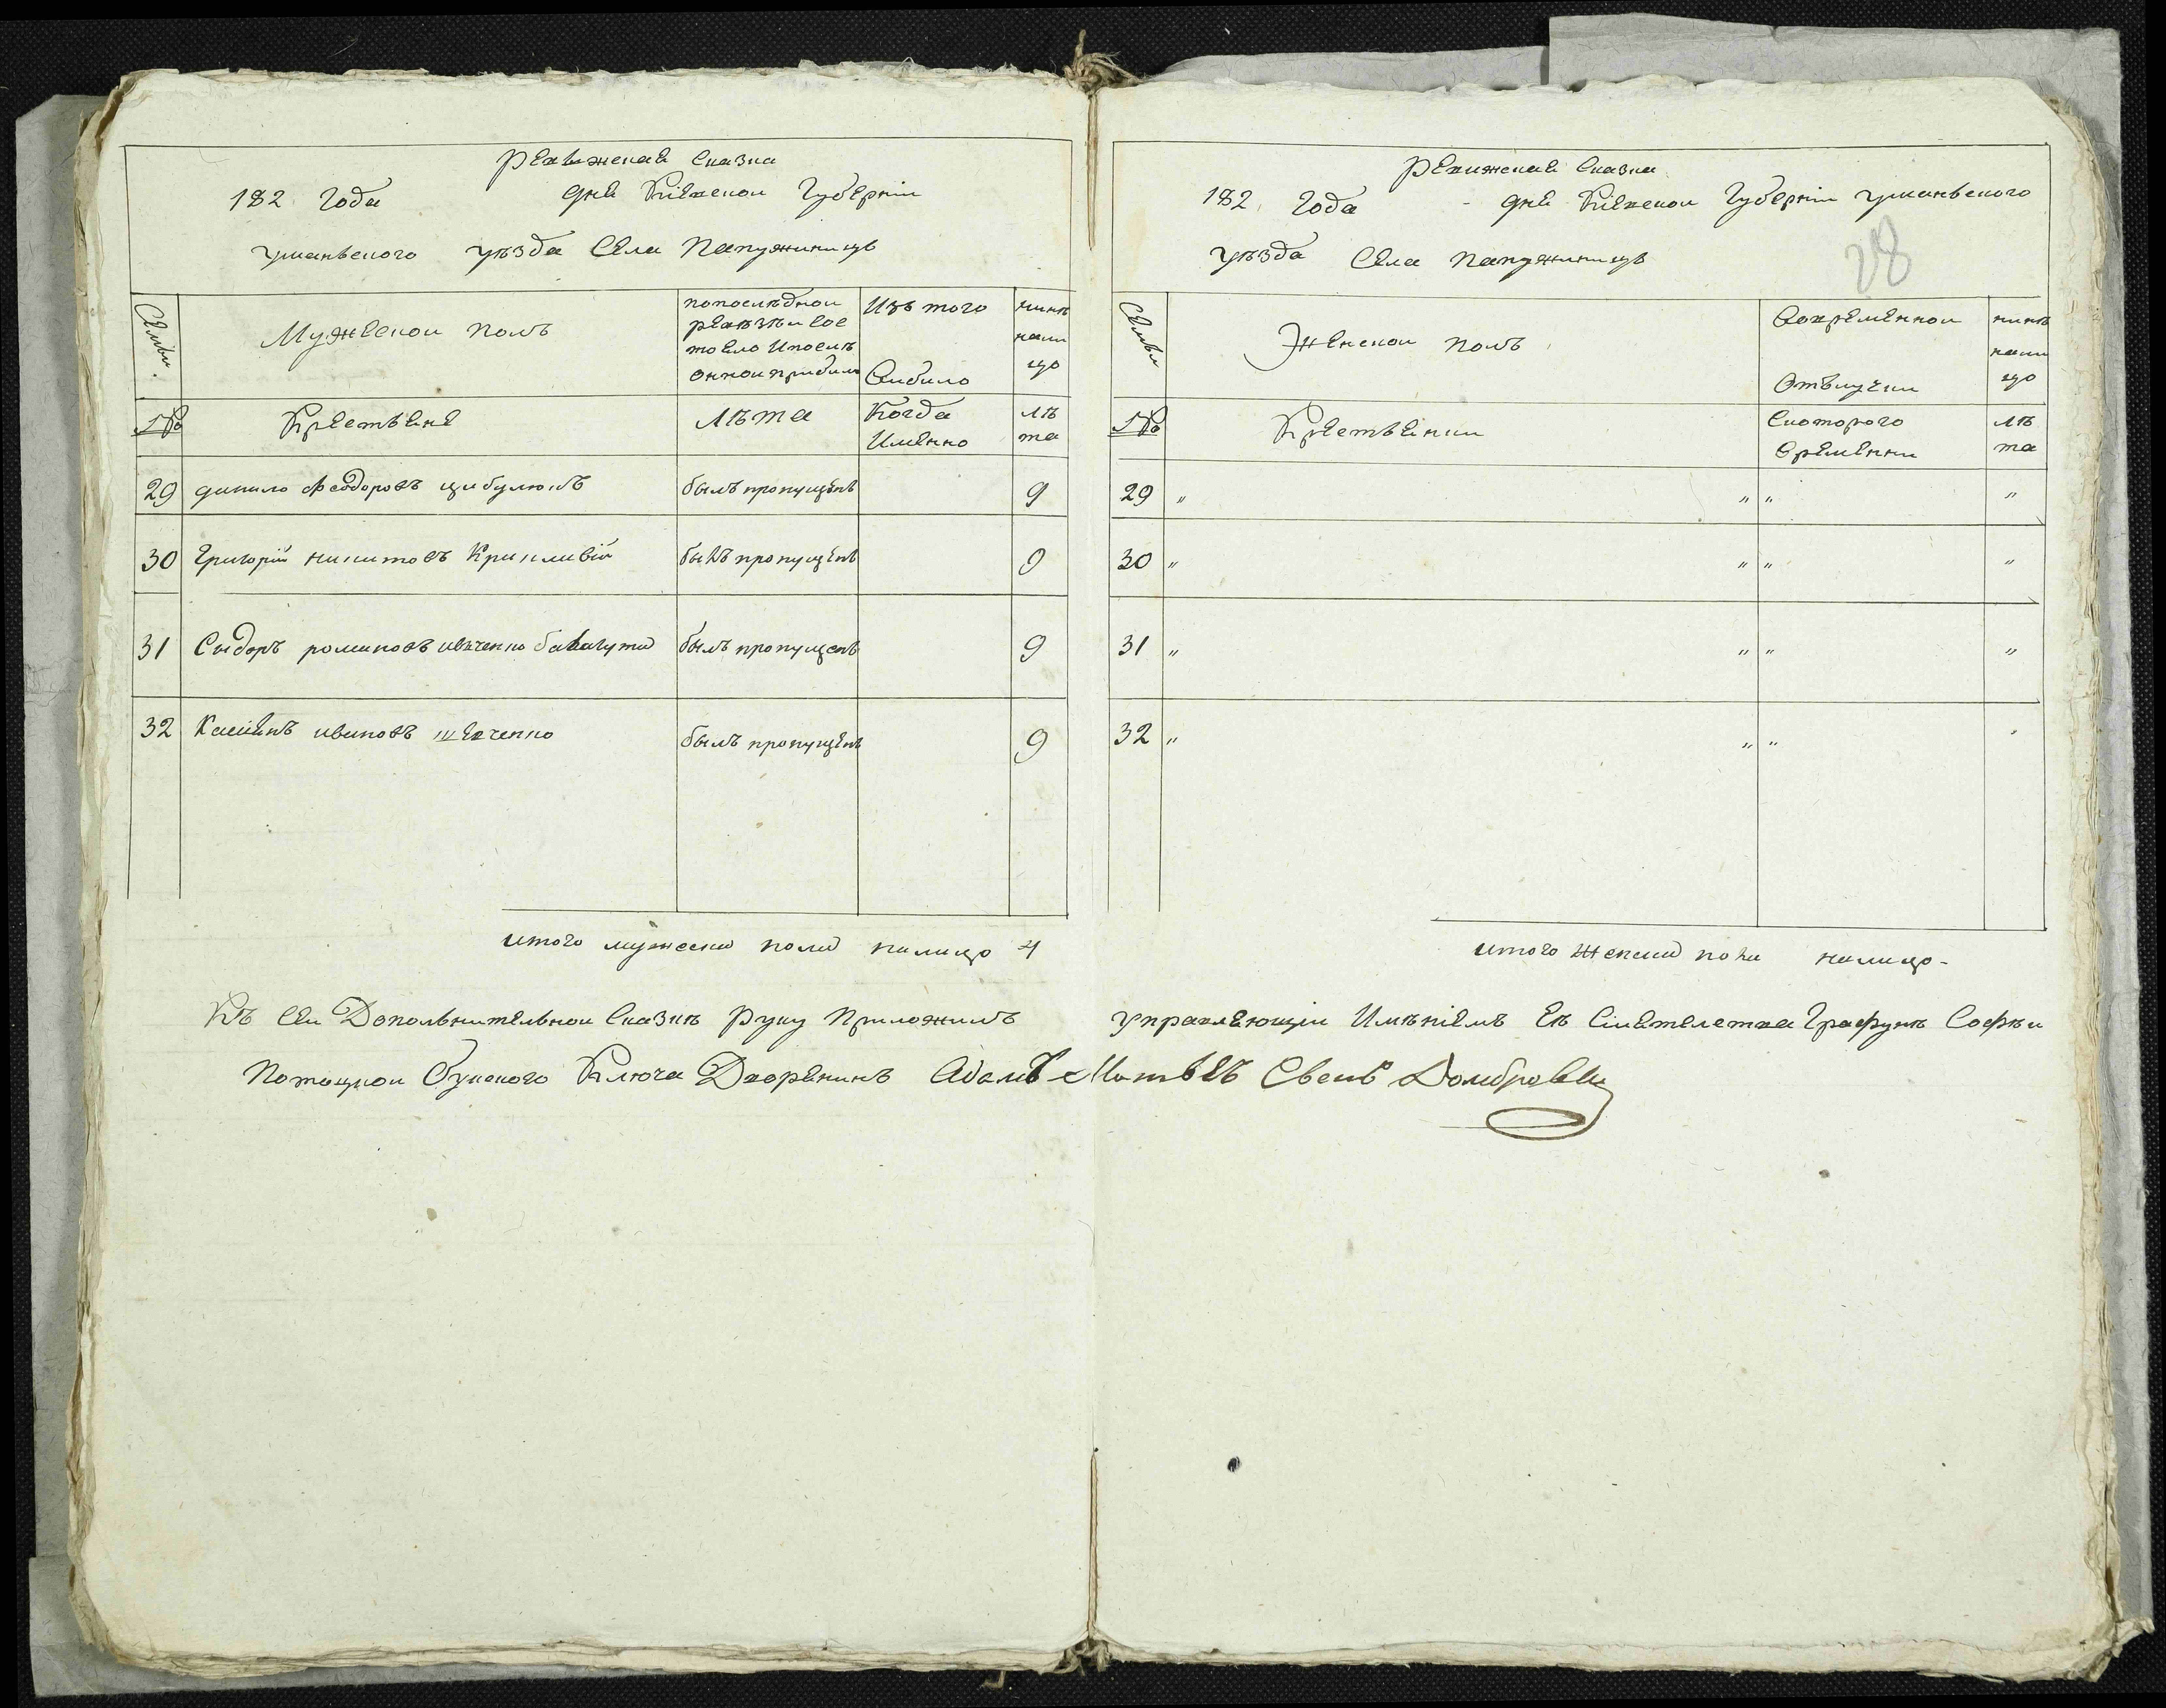 Ревижская Сказка
182 Года дня Кіевской Губерніи
Уманьского уѣзда Села Папужинцѣ
Семьи
Мужеской полъ
попослѣднои
ревѣзѣи сос
тояло Ипослѣ
оннои прибыло
Изъ того
Выбило
нинѣ
нали
цо
№
Крестьяне
Лѣта
Когда
Именно
лѣ
та
29 данило Феодоровъ цибулюкъ былъ пропущенъ 9
30 Григорій никитовъ Крикливій былъ пропущенъ 9
31 Сыдоръ романовъ ивченко бакагута былъ пропущенъ 9
32 Касіянъ ивановъ шевченко былъ пропущенъ 9
итого мужеска пола налицо 4
Ревижская Сказка
182 Года дня Кіевской Губерніи Уманьского
28
уѣзда Села Папужинцѣ
Семьи
Женской полъ
Вовременнои
Отълучки
нинѣ
нали
цо
№
Крестьянки
Скоторого
Времѣнни
лѣ
та
29 " " " "
30 " " " "
31 " " " "
32 " " " "
итого женска пола налицо -
Къ сей Допольнительной Сказкѣ Руку Приложилъ Управляющіи Имѣніемъ Еѣ Сіятелства Графунѣ Софѣи
Потоцкои Букского Ключа Дворянинъ Адамъ Матвѣевъ Сынъ Домбровски